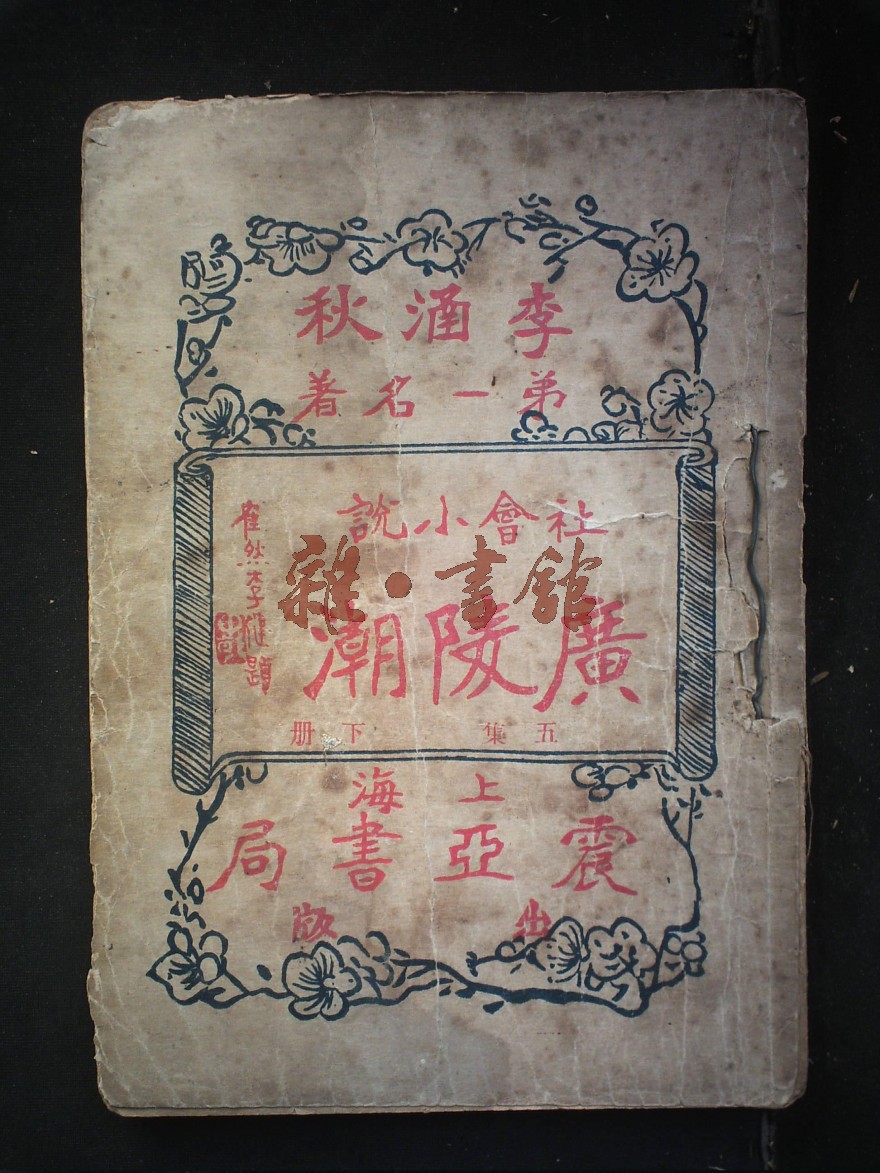 李涵秋
弟一名著
社會小說
廣陵潮
五集 下册
崔然李 題
上海
震亞書局
出版
雜·書館